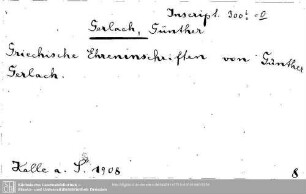 Inscript. 300t =0
Gerlach, Günther
Griechische Ehreninschriften von Günther
Gerlach.
Halle a. S. 1908
8
Sächsische Landesbibliothek -
Staats- und Universitätsbibliothek Dresden